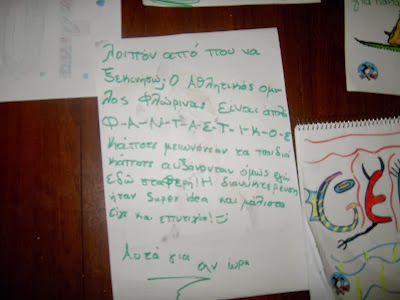 Λοιπόν από που να
ξεκινήσω; Ο Αθλητικός ομι-
λος Φλώρινας είναι απλά
Φ-Α-Ν-Τ-Α-Σ-Τ-Ι-Κ-Ο-Σ
κάποτε μειωνόνταν τα παιδιά
κάποτε αυξάνονταν όμως εγώ
εδώ σταθερή! Η διανυκτέρευση
ήταν super idea και μάλιστα
είχε και επιτυχία!
Αυτά για
την ώρα
για
GE